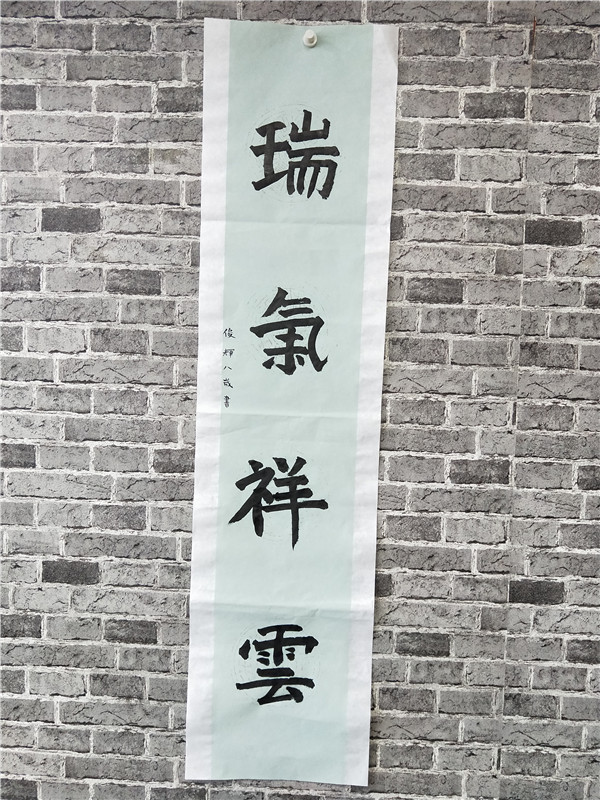 瑞氣祥雲
俊輝八歲書